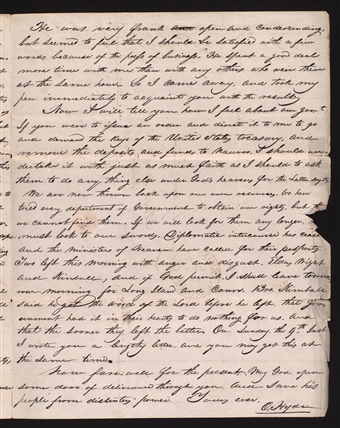 He was very frank and open and condescending,
but seemed to feel that I should be satisfied with a few
words because of the press of business. He spent a good deal
more time with me than with any others who seen them
at the same hour. So I came away, and took my
pen immediately to acquaint you with the results
Now I will tell you how I feel about our gov't
If you were to issue an order and direct it to me to go
and demand the keys of the United States treasury, and
remove the deposits and funds to Nauvoo I should un
dertake it with just as much faith as I should to ask
them to do any thing else under God's heavens for the Latter day Sts
We are now thrown back upon our own resources, we have
tried every department of Government to obtain our rights, but
we cannot find them. If we will look for them any longer,
must look to our swords, Diplomatic intercourse has ceased
and the ministers of Heaven have called for their passports
Two left this morning with anger and disgust, Elders Wight
and Kimball, and if God permit I shall leave tomor
row morning for Long Island and Conn. Bro. Kimball
said he got the voice of the Lord upon he left that gov
ernment had it in their hearts to do nothing for us, and
that the sooner they left the better. On Sunday the 9th Inst.
I wrote you a lengthy letter, and you may get this at
the same time.
Now farewell for the present. May God open
some door of deliverance through you and save his
people from distenting power. Yours ever.
O. Hyde